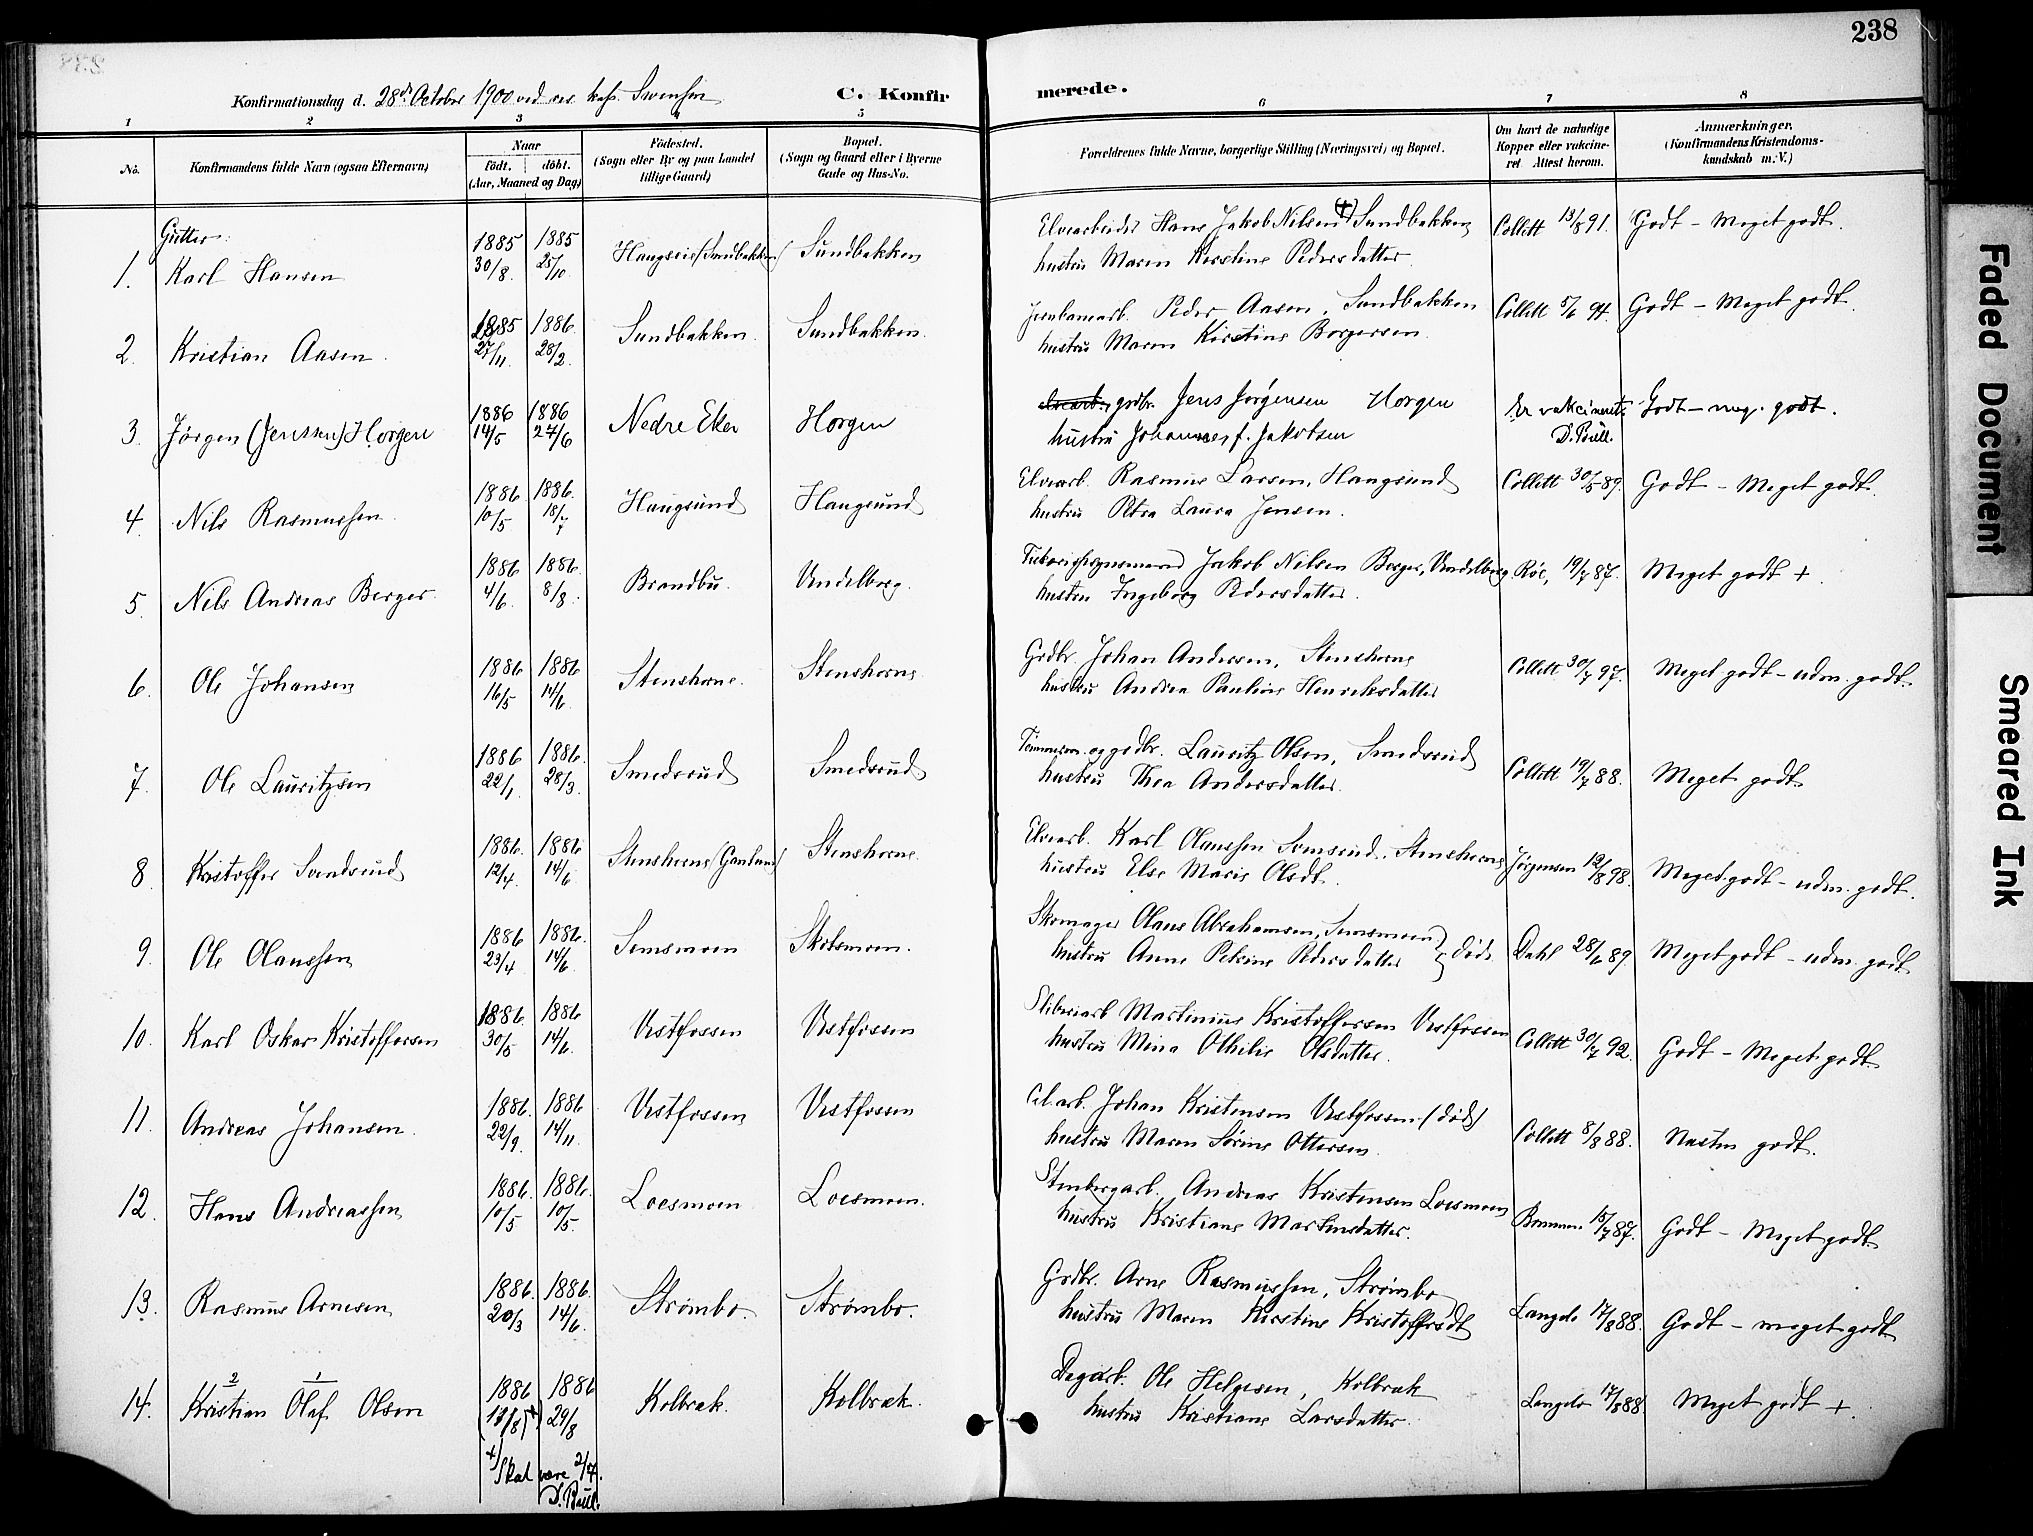 238
Konfirmationsdag d. 28de October 1900 ved res. kap. Svensen
C. Konfirmerede.
1 2 3 4 5 6 7 8
No.
Konfirmandens fulde Navn (ogsaa Efternavn)
Naar
födt. döbt.
(Aar, Maaned og Dag)
Födested.
(Sogn eller By og paa Landet
tillige Gaard)
Bopæl.
(Sogn og Gaard eller i Byerne
Gade og Hus-No.
Forældrenes fulde Navne, borgerlige Stilling (Næringsvei) og Bopæl.
Om havt de naturlige
Kopper eller vakcine-
ret Attest herom.
Anmærkninger.
(Konfirmandens Kristendoms-
kundskab m. V.)
Gutter:
1. Karl Hansen 1885 30/8. 1885 25/10. Sundbakken
Elvearbeider Hans Jakob Nilsen (+) Sundbakken
hustru Maren Kirstine Pedersdatter. Collett 13/8 91. Godt – Meget godt.
2. Kristian Aasen. 1885 27/11. 1886. 28/2. Sundbakken. Sundbakken.
Jernbanearb. Peder Aasen, Sundbakken
hustru Maren Kirstine Borgersen. Collett 5/6 94. Godt – Meget godt.
3. Jørgen (Jenssen) Horgen 1886 14/5 1886 27/6 Nedre Eker Horgen
elvearb., grdbr. Jens Jørgensen Horgen
hustru Johanne f. Jakobsen Er vakcineret. D. Büll. Godt – meg. godt.
4. Nils Rasmussen. 1886 10/5 1886. 18/7 Haugsund Haugsund
Elvearb. Rasmus Larsen, Haugsund
hustru Petra Laura Jensen. Collett 30/5 89. Godt – Meget godt.
5. Nils Andreas Berger. 1886 4/6. 1886. 8/8. Brandbu. Vendelborg.
Jakob Nilsen Berger, Vendelborg
hustru Ingeborg Pedersdatter. Röe, 19/7 87. Meget godt +.
6. Ole Johansen 1886 16/5 1886 14/6. Stenshorne. Stenshorne
Grdbr. Johan Andersen, Stenshorne
hustru Andrea Pauline Henriksdatter Collett 30/7 97. Meget godt – udm. godt.
7. Ole Lauritzsen 1886 22/1. 1886. 28/3. Smedsrud Smedsrud
Tömmerm. og grdbr. Lauritz Olsen, Smedsrud
hustru Thea Andersdatter. Collett 19/7 88. Meget godt.
8. Kristoffer Semsrud 1886. 12/4. 1886 14/6 Stenshorne. Stenshorne.
Elvearb. Karl Olaussen Semsrud. Stenshorne
hustru Else Marie Olsdt. Jörgensen 12/8 98. Meget godt – udm. godt.
9. Ole Olaussen 1886 23/4 1886. 14/6. Semsmoen Skotsmoen.
Skomager Olaus Abrahamsen, Semsmoen
hustru Anne Petrine Pedersdatter } døde Dahl 28/6 89. Meget godt – udm. godt
10. Karl Oskar Kristoffersen 1886. 30/5 1886 14/6. Vestfossen Vestfossen
Sliberiarb Martinius Kristoffersen Vestfossen
hustru Mina Othilie Olsdatter. Collett 30/7 92. Godt – Meget godt.
11. Andreas Johansen. 1886. 22/9. 1886 14/11. Vestfossen Vestfossen
Cel. arb. Johan Kristensen Vestfossen. (død)
hustru Maren Sørine Ottersen. Collett 8/8 88. Næsten godt.
12. Hans Andreassen 1886. 10/5 1886. 10/5. Loesmoen Loesmoen.
Stenbergarb. Andreas Kristensen Loesmoen
hustru Kristiane Martinsdatter. 15/7 87. Godt – Meget godt.
13. Rasmus Arnesen 1886. 20/3 1886. 14/6. Strömbo. Strömbo.
Grdbr. Arne Rasmussen, Strömbo
hustru Maren Kirstine Kristoffersdt Langelo 17/8 88. Godt – meget godt
2 1
14. Kristian Olaf Olsen 1886 (18/8 +) 1886 29/8 Kolbræk. Kolbræk.
Dagarb. Ole Helgesen, Kolbræk
hustru Kristiane Larsdatter. Langelo 17/8 88. Meget godt +.
+) Skal være 2/7.
D. Büll.
Faded Document
Smeared Ink